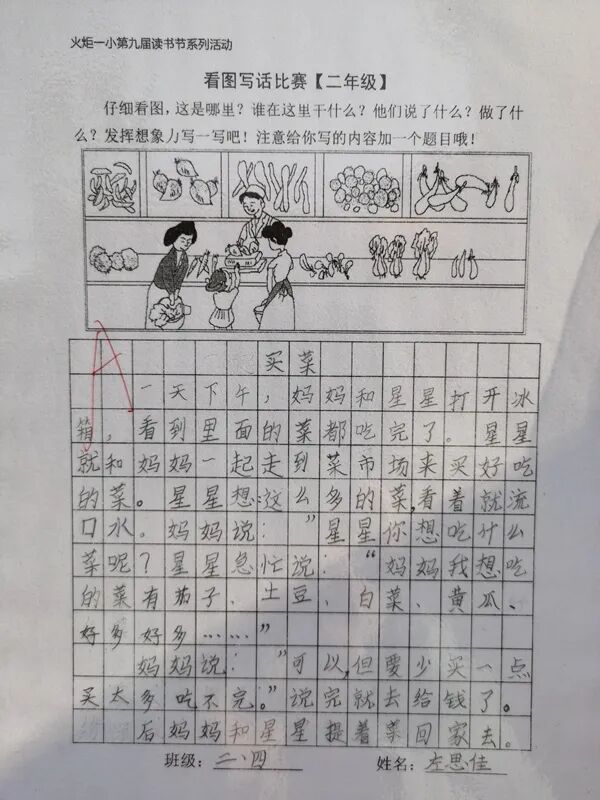 火炬一小第九届读书节系列活动
看图写话比赛【二年级】
仔细看图，这是哪里？谁在这里干什么？他们说了什么？做了什
么？发挥想象力写一写吧！注意给你写的内容加一个题目哦！
买菜
A
一天下午，妈妈和星星打开冰
箱，看到里面的菜都吃完了。星星
就和妈妈一起走到菜市场来买好吃
的菜。星星想：这么多的菜，看着就流
口水。妈妈说：”星星你想吃什么
菜呢？星星急忙说：“妈妈我想吃
的菜有茄子、土豆、白菜、黄瓜、
好多好多……”
妈妈说：“可以，但要少买一点
买太多吃不完。”说完就去给钱了。
后妈妈和星星提着菜回家去。
班级：二、四 姓名：左思佳